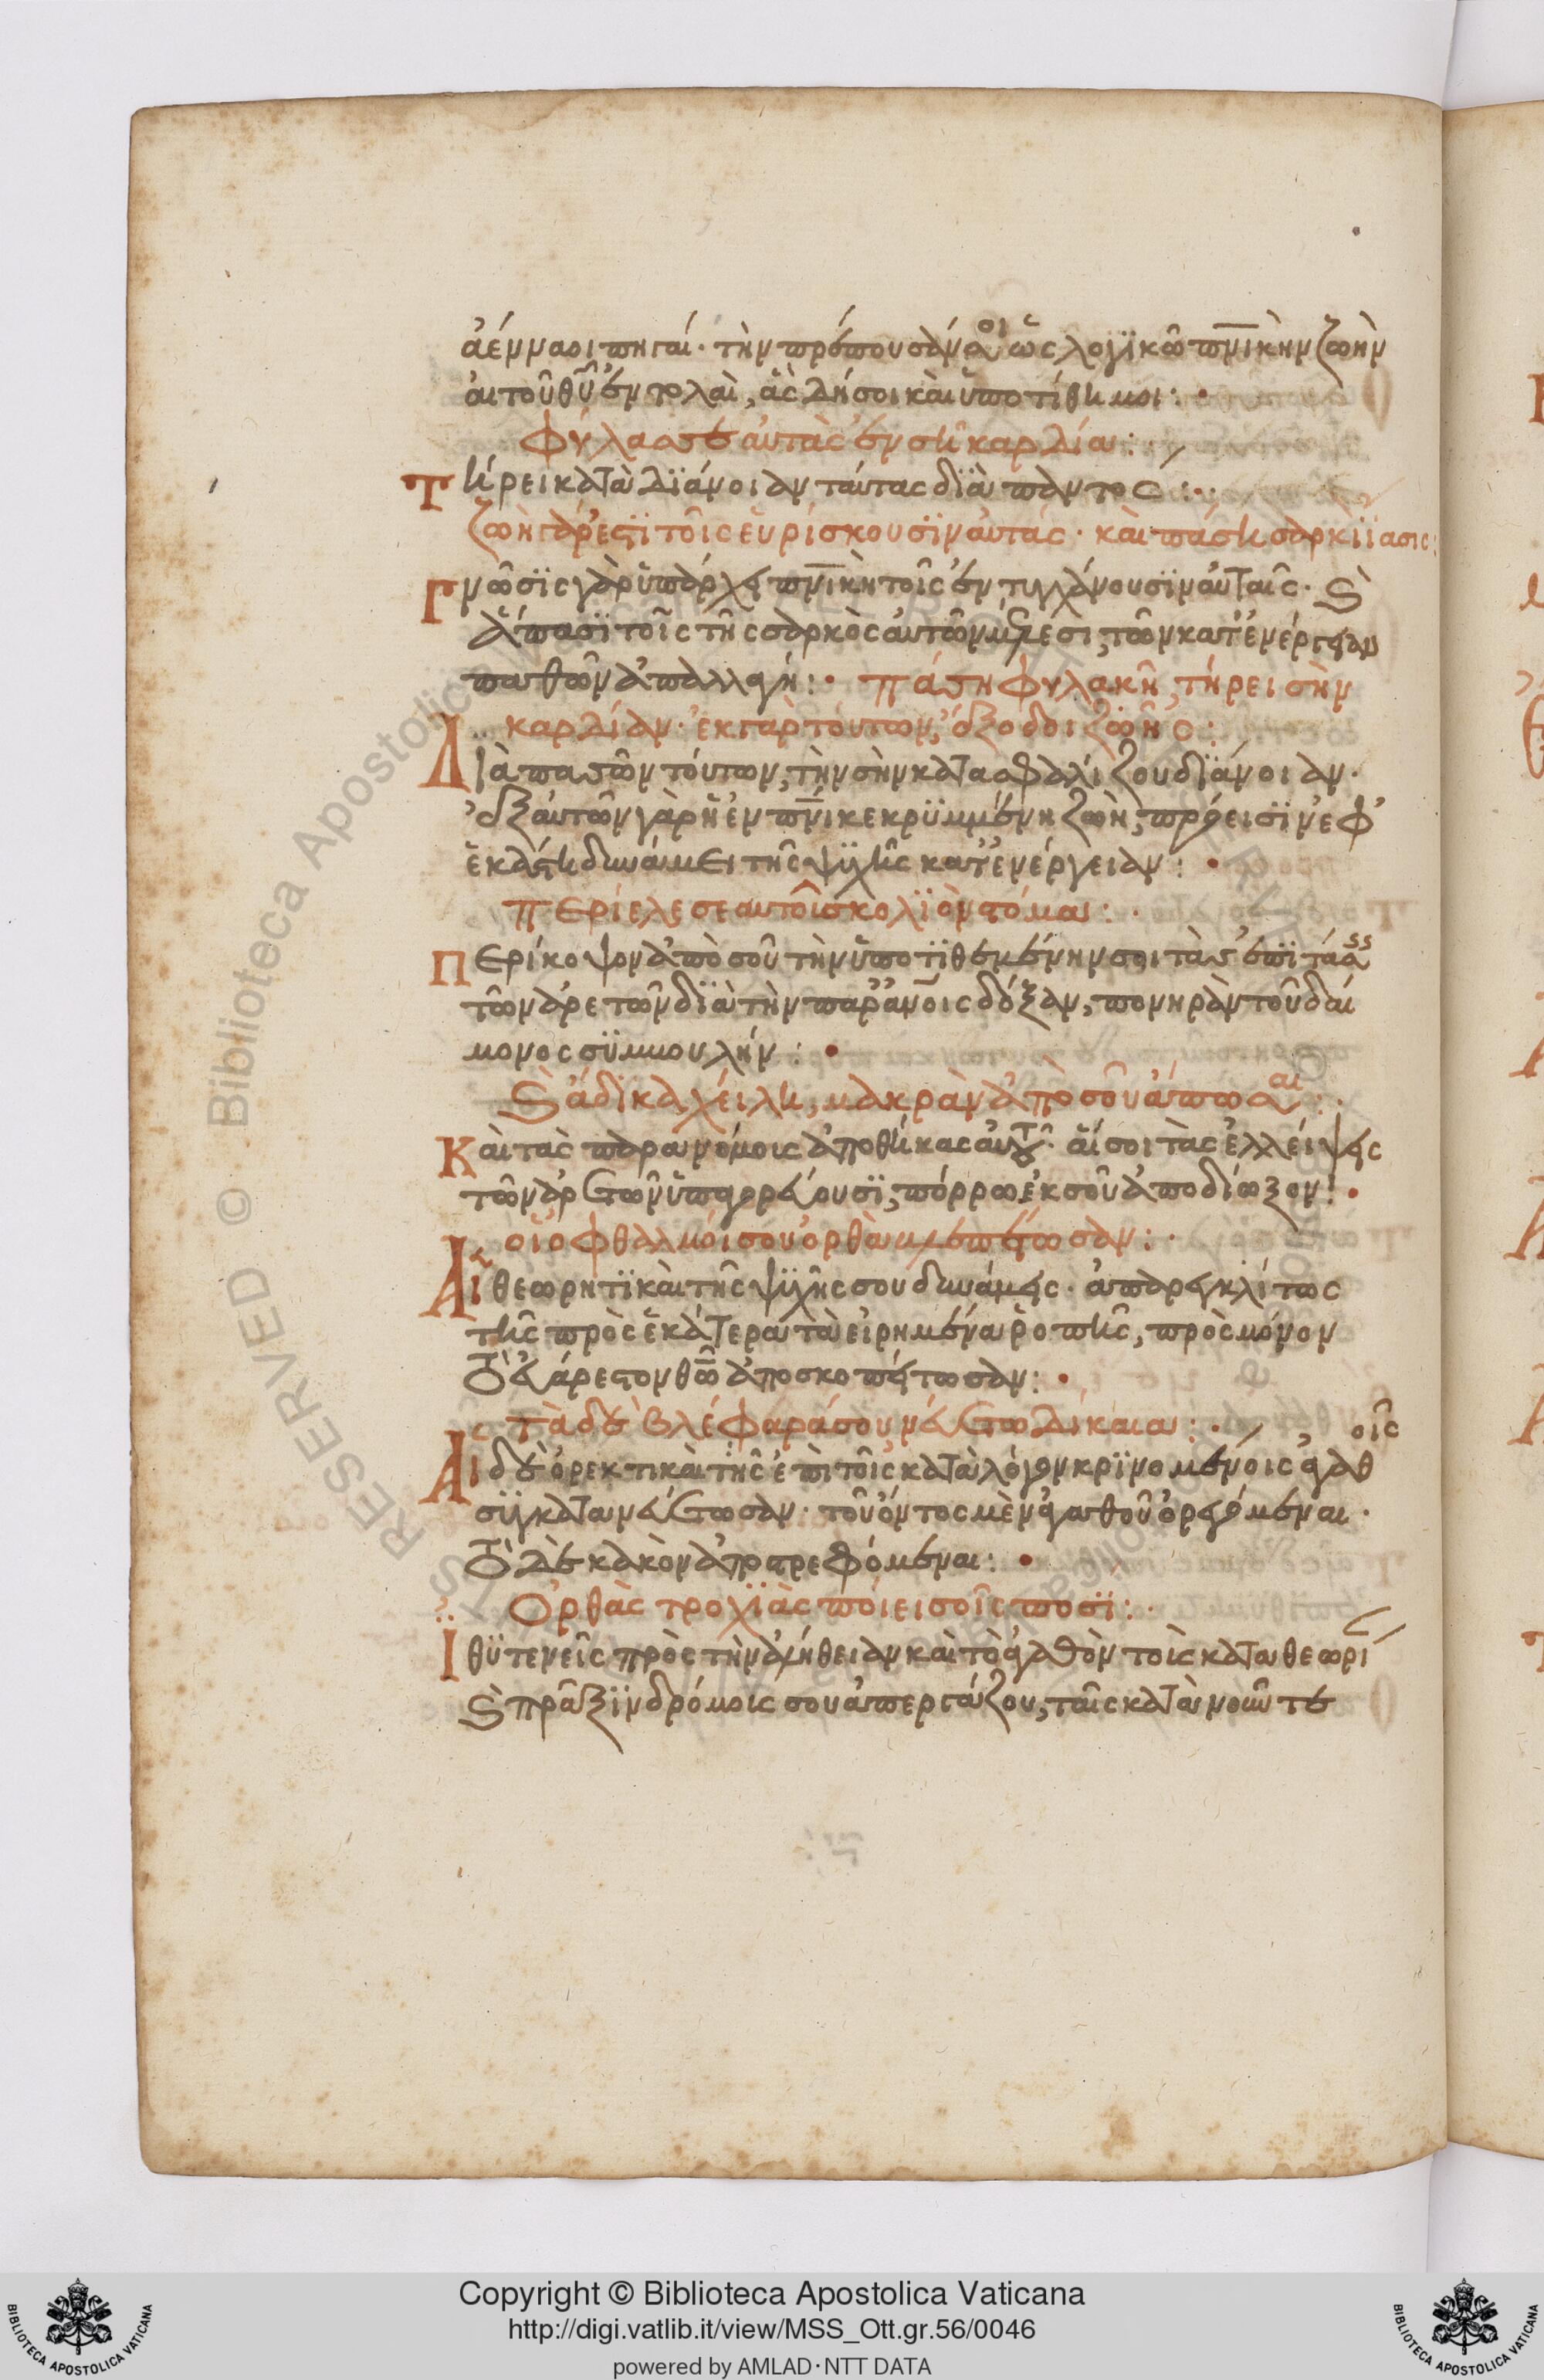 ἀένναοι πηγαί· τὴν πρέπουσάν σοι ὡς λογικῷ πνικὴν ζωὴν
αἱ τοῦ θυ ἐντολαὶ, ἃς δή σοι καὶ ὑποτίθημι:
φύλασσε αὐτὰς ἐν σῆ καρδία:
Τήρει κατὰ διάνοιαν ταύτας διὰ παντος:
ζωὴ γάρ ἐστὶ τοῖς εὑρίσκουσιν αὐτάς· καὶ πάση σαρκὶ ἴασις:
Γνῶσις γὰρ ὑπάρχει πνικὴ τοῖς ἐντυγχάνουσιν αὐταῖς· καὶ
ἅπασι τοῖς τῆς σαρκὸς αὐτῶν μέλεσι, τῶν κατ' ἐνέργειαν
παθῶν ἀπαλλαγή: πάση φυλακῆ, τήρει σὴν
καρδίαν· ἐκ γὰρ τούτων, ἔξοδοι ζωῆς:
Διὰ πασῶν τούτων, τὴν σὴν κατασφαλίζου διάνοιαν·
ἐξ αὐτῶν γὰρ ἡ ἐν πνι κεκρυμμένη ζωὴ, πρόεισιν ἐφ'
ἑκάστη δυνάμει τῆς ψυχῆς κατ' ἐνέργειαν:
περίελε σεαυτοῖ σκολιὸν στόμα:
Περίκοψον ἀπὸ σοῦ τὴν ὑποτιθεμένην σοι τὰς ἐπιτάσεις
τῶν ἀρετῶν διὰ τὴν παρ' ἀνοις δόξαν, πονηρὰν τοῦ δαί
μονος συμβουλήν:
καὶ ἄδικα χείλη, μακρὰν ἀπὸ σοῦ ἄπωσαι:
Καὶ τὰς παρανόμοις ἀποθήκας αὐτοῦ· αἵ σοι τὰς ἐλλείψεις
τῶν ἀρετῶν ὑπαγορεύουσι, πόρρω ἐκ σοῦ ἀποδίωξον:
οἱ ὀφθαλμοί σου ὀρθὰ βλεπέτωσαν:
Αἱ θεωρητικαὶ τῆς ψυχῆς σου δυνάμεις· ἀπαρεγκλίτως
τῆς πρὸς ἑκάτερα τὰ εἰρημένα ῥοπῆς, πρὸς μόνον
τὸ εὐάρεστον θῶ ἀποσκοπείτωσαν:
τὰ δὲ βλέφαρά σου νευέτω δίκαια:
Αἱ δὲ ὀρεκτικαὶ τῆς ἐπὶ τοῖς κατὰ λόγον κρινομένοις ἀγαθοῖς
συγκατανευέτωσαν· τοῦ ὄντος μὲν ἀγαθοῦ ὀρεγόμεναι·
τὸ δὲ κακὸν ἀποστρεφόμεναι:
Ὀρθὰς τροχιὰς ποίει σοῖς ποσί:
Ἰθυτενεῖς πρὸς τὴν ἀλήθειαν καὶ τὸ ἀγαθὸν τοὶς κατα θεωρί
καὶ πρᾶξιν δρόμοις σου ἀπεργάζου, ταῖς κατὰ νοῦν τε
RESERVED © Biblioteca Apostolica
Copyright © Biblioteca Apostolica Vaticana
http://digi.vatlib.it/view/MSS_Ott.gr.56/0046
powered by AMLAD·NTT DATA
BIBLIOTECA APOSTOLICA VATICANA
BIBLIOTECA APOSTOLICA VATICANA